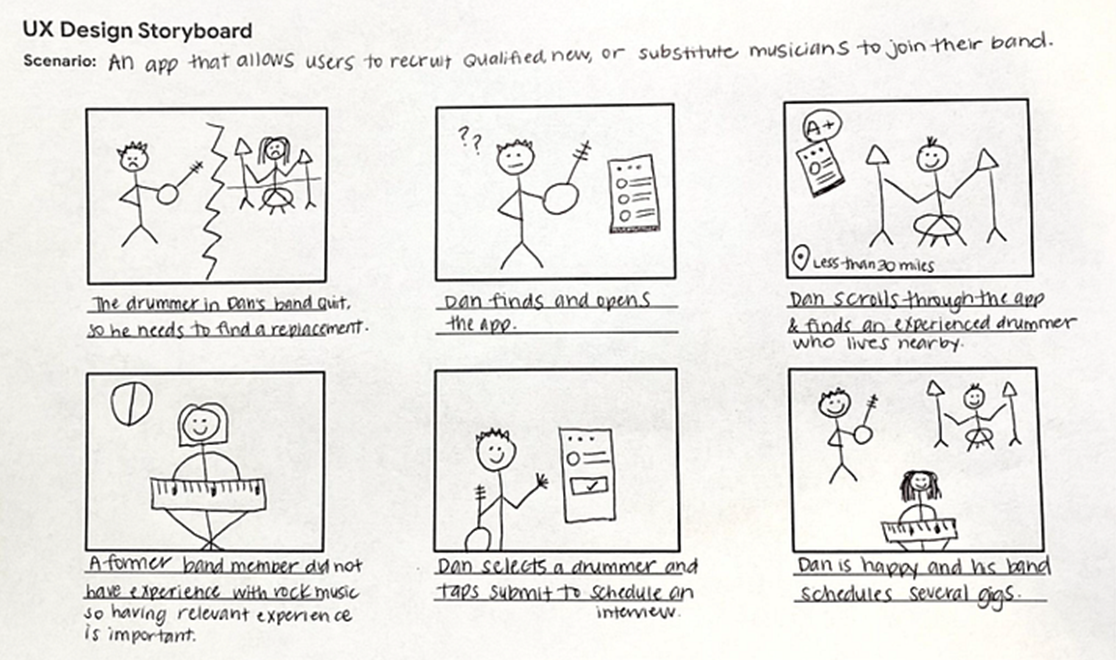 UX Design Storyboard
Scenario: An app that allows users to recruit Qualified new, or substitute musicians to join their band.
??
A+
Less than 30 miles
The drummer in Dan's band quit,
so he needs to find a replacement.
Dan finds and opens
the app.
Dan scrolls through the app
& finds an experienced drummer
who lives nearby.
A former band member did not
have experience with rock music
so having relevant experience
is important.
Dan selects a drummer and
taps submit to schedule an
interview.
Dan is happy and his band
schedules several gigs.